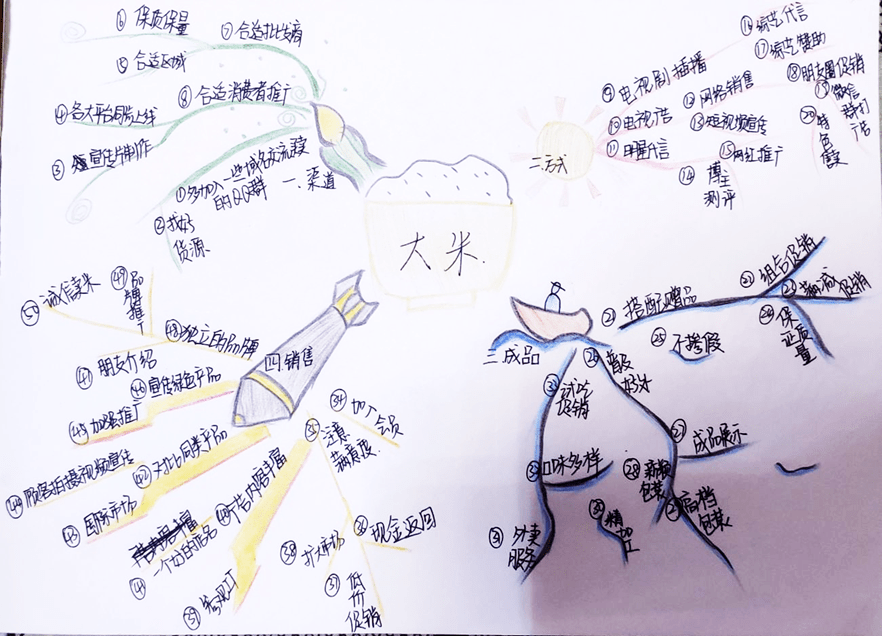 大米
一.渠道
①多加入一些域名交流及的QQ群
②找好货源
③宣传片制作
④各大平台同步上线
⑤合适区域
⑥保质保量
⑦合适批发商
⑧合适消费者推广
二.方式
⑨电视剧插播
⑩电视广告
⑪明星代言
⑫网络销售
⑬短视频宣传
⑭博主测评
⑮网红推广
⑯综艺代言
⑰综艺赞助
⑱朋友圈促销
⑲微信群打广告
⑳特色
三.成品
㉑搭配赠品
㉒组合促销
㉓满减促销
㉔保证质量
㉕不掺假
㉖
㉗成品展示
㉘新颖包装
㉙高档包装
精加工
试吃促销
口味多样
外卖服务
四.销售
㉞加厂会员
㉟注意满意度
㊱现金返回
㊲低价促销
㊳扩大市场
㊴参观工厂
㊵广告内容丰富
㊶一个好的产品
㊷对比同类产品
㊸国际市场
㊹顾客拍摄视频宣传
㊺加强推广
㊻宣传绿色产品
㊼朋友介绍
㊽独立的品牌
㊾品牌推广
㊿诚信卖米